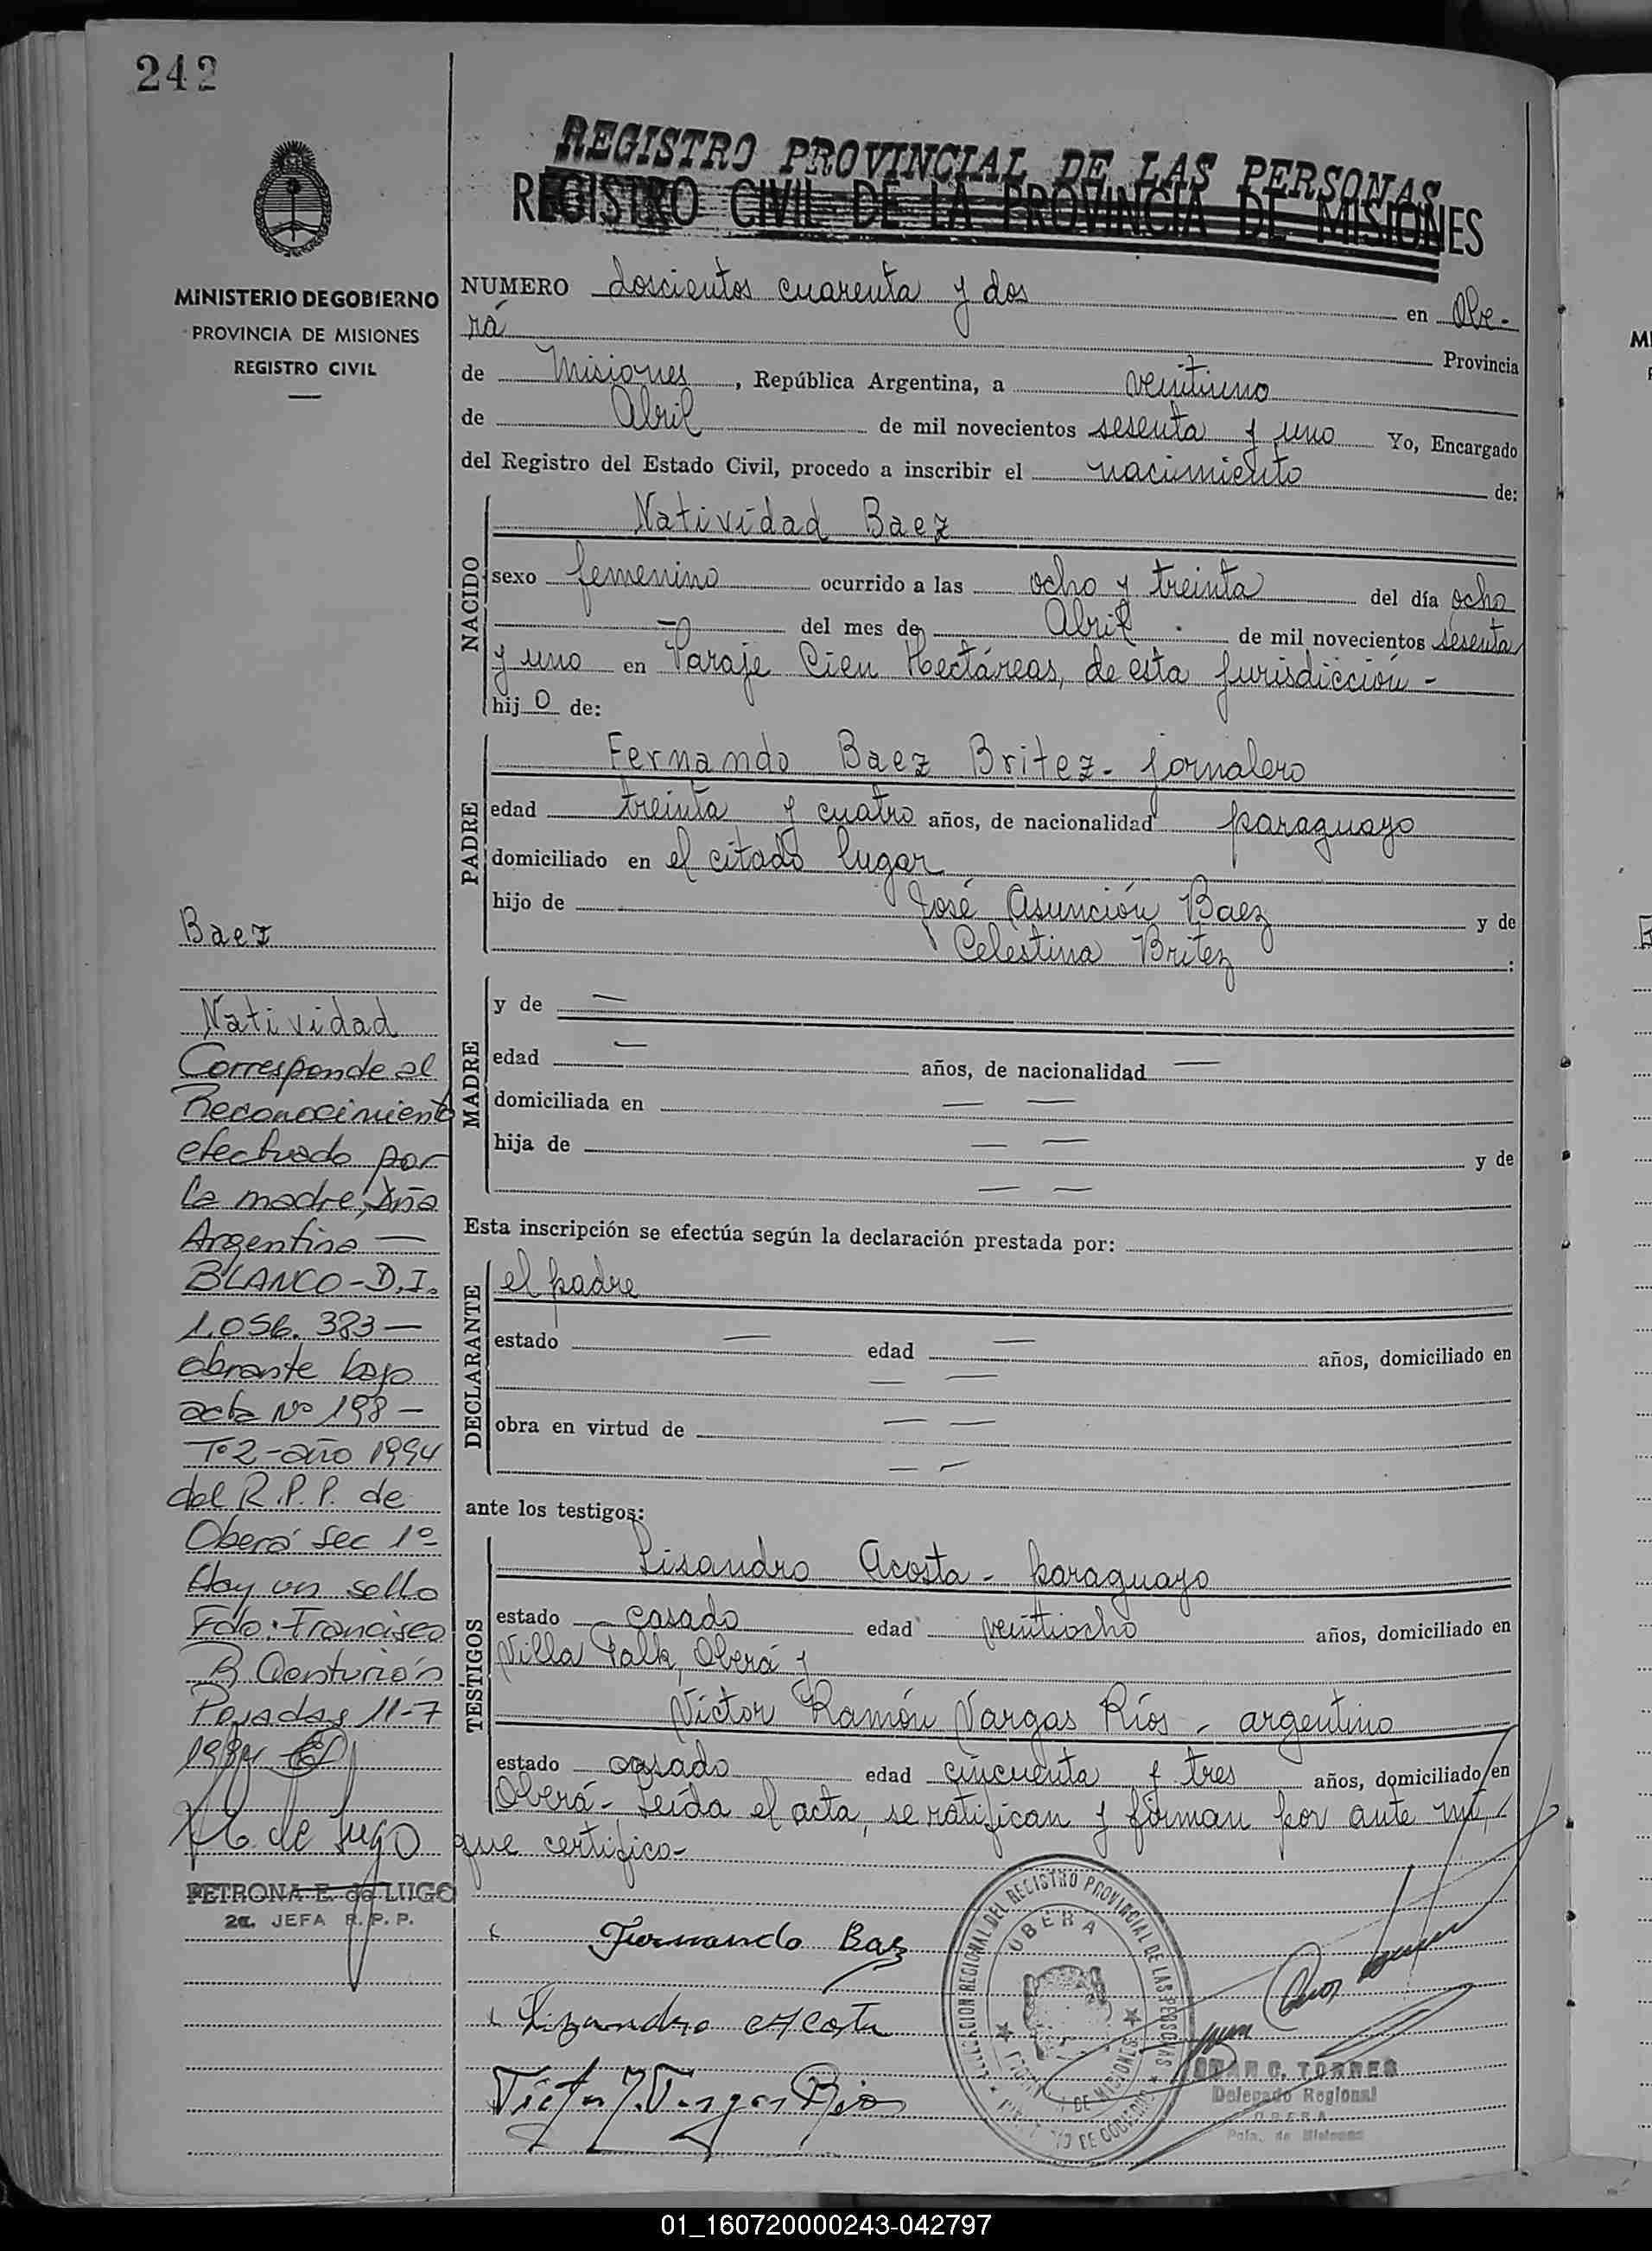 242
REGISTRO PROVINCIAL DE LAS PERSONAS
REGISTRO CIVIL DE LA PROVINCIA DE MISIONES
MINISTERIO DE GOBIERNO
PROVINCIA DE MISIONES
REGISTRO CIVIL
NUMERO doscientos cuarenta y dos en Obe-
rá Provincia
de Misiones, República Argentina, a veintiuno
de Abril de mil novecientos sesenta y uno Yo, Encargado
del Registro del Estado Civil, procedo a inscribir el nacimiento de:
NACIDO
Natividad Baez
sexo femenino ocurrido a las ocho y treinta del día ocho
— del mes de Abril de mil novecientos sesenta
y uno en Paraje Cien Hectáreas, de esta jurisdicción -
hij o de:
PADRE
Fernando Baez Britez - jornalero
edad treinta y cuatro años, de nacionalidad paraguayo
domiciliado en el citado lugar
hijo de José Asunción Baez y de
Celestina Britez :
MADRE
y de —
edad — años, de nacionalidad —
domiciliada en — —
hija de — — y de
— —
Esta inscripción se efectúa según la declaración prestada por:
DECLARANTE
el padre
estado — edad — años, domiciliado en
— —
obra en virtud de — —
— —
ante los testigos:
TESTIGOS
Lisandro Acosta - paraguayo
estado casado edad veintiocho años, domiciliado en
Villa Falk, Oberá y
Víctor Ramón Vargas Ríos - argentino
estado casado edad cincuenta y tres años, domiciliado en
Oberá - Leída el acta, se ratifican y firman por ante mí,
que certifico-
Baez
Natividad
Corresponde al
Reconocimiento
efectuado por
la madre, Dña
Argentina —
BLANCO - D.I.
1.056.383 —
obrante bajo
acta Nº 198 -
Tº 2 - año 1994
del R.P.P. de
Oberá sec 1º
Hay un sello
Fdo: Francisco
R. Centurión
Posadas 11-7
1994
de Lugo
PETRONA E. de LUGO
2a. JEFA R.P.P.
Fernando Baez
Lizandro Acosta
Victor R. Vargas Rios
DELEGACION REGIONAL DEL REGISTRO PROVINCIAL DE LAS PERSONAS
OBERA
DE MISIONES
DE GOBIERNO
C. TORRES
Delegado Regional
OBERA
Pcia. de Misiones
01_160720000243-042797